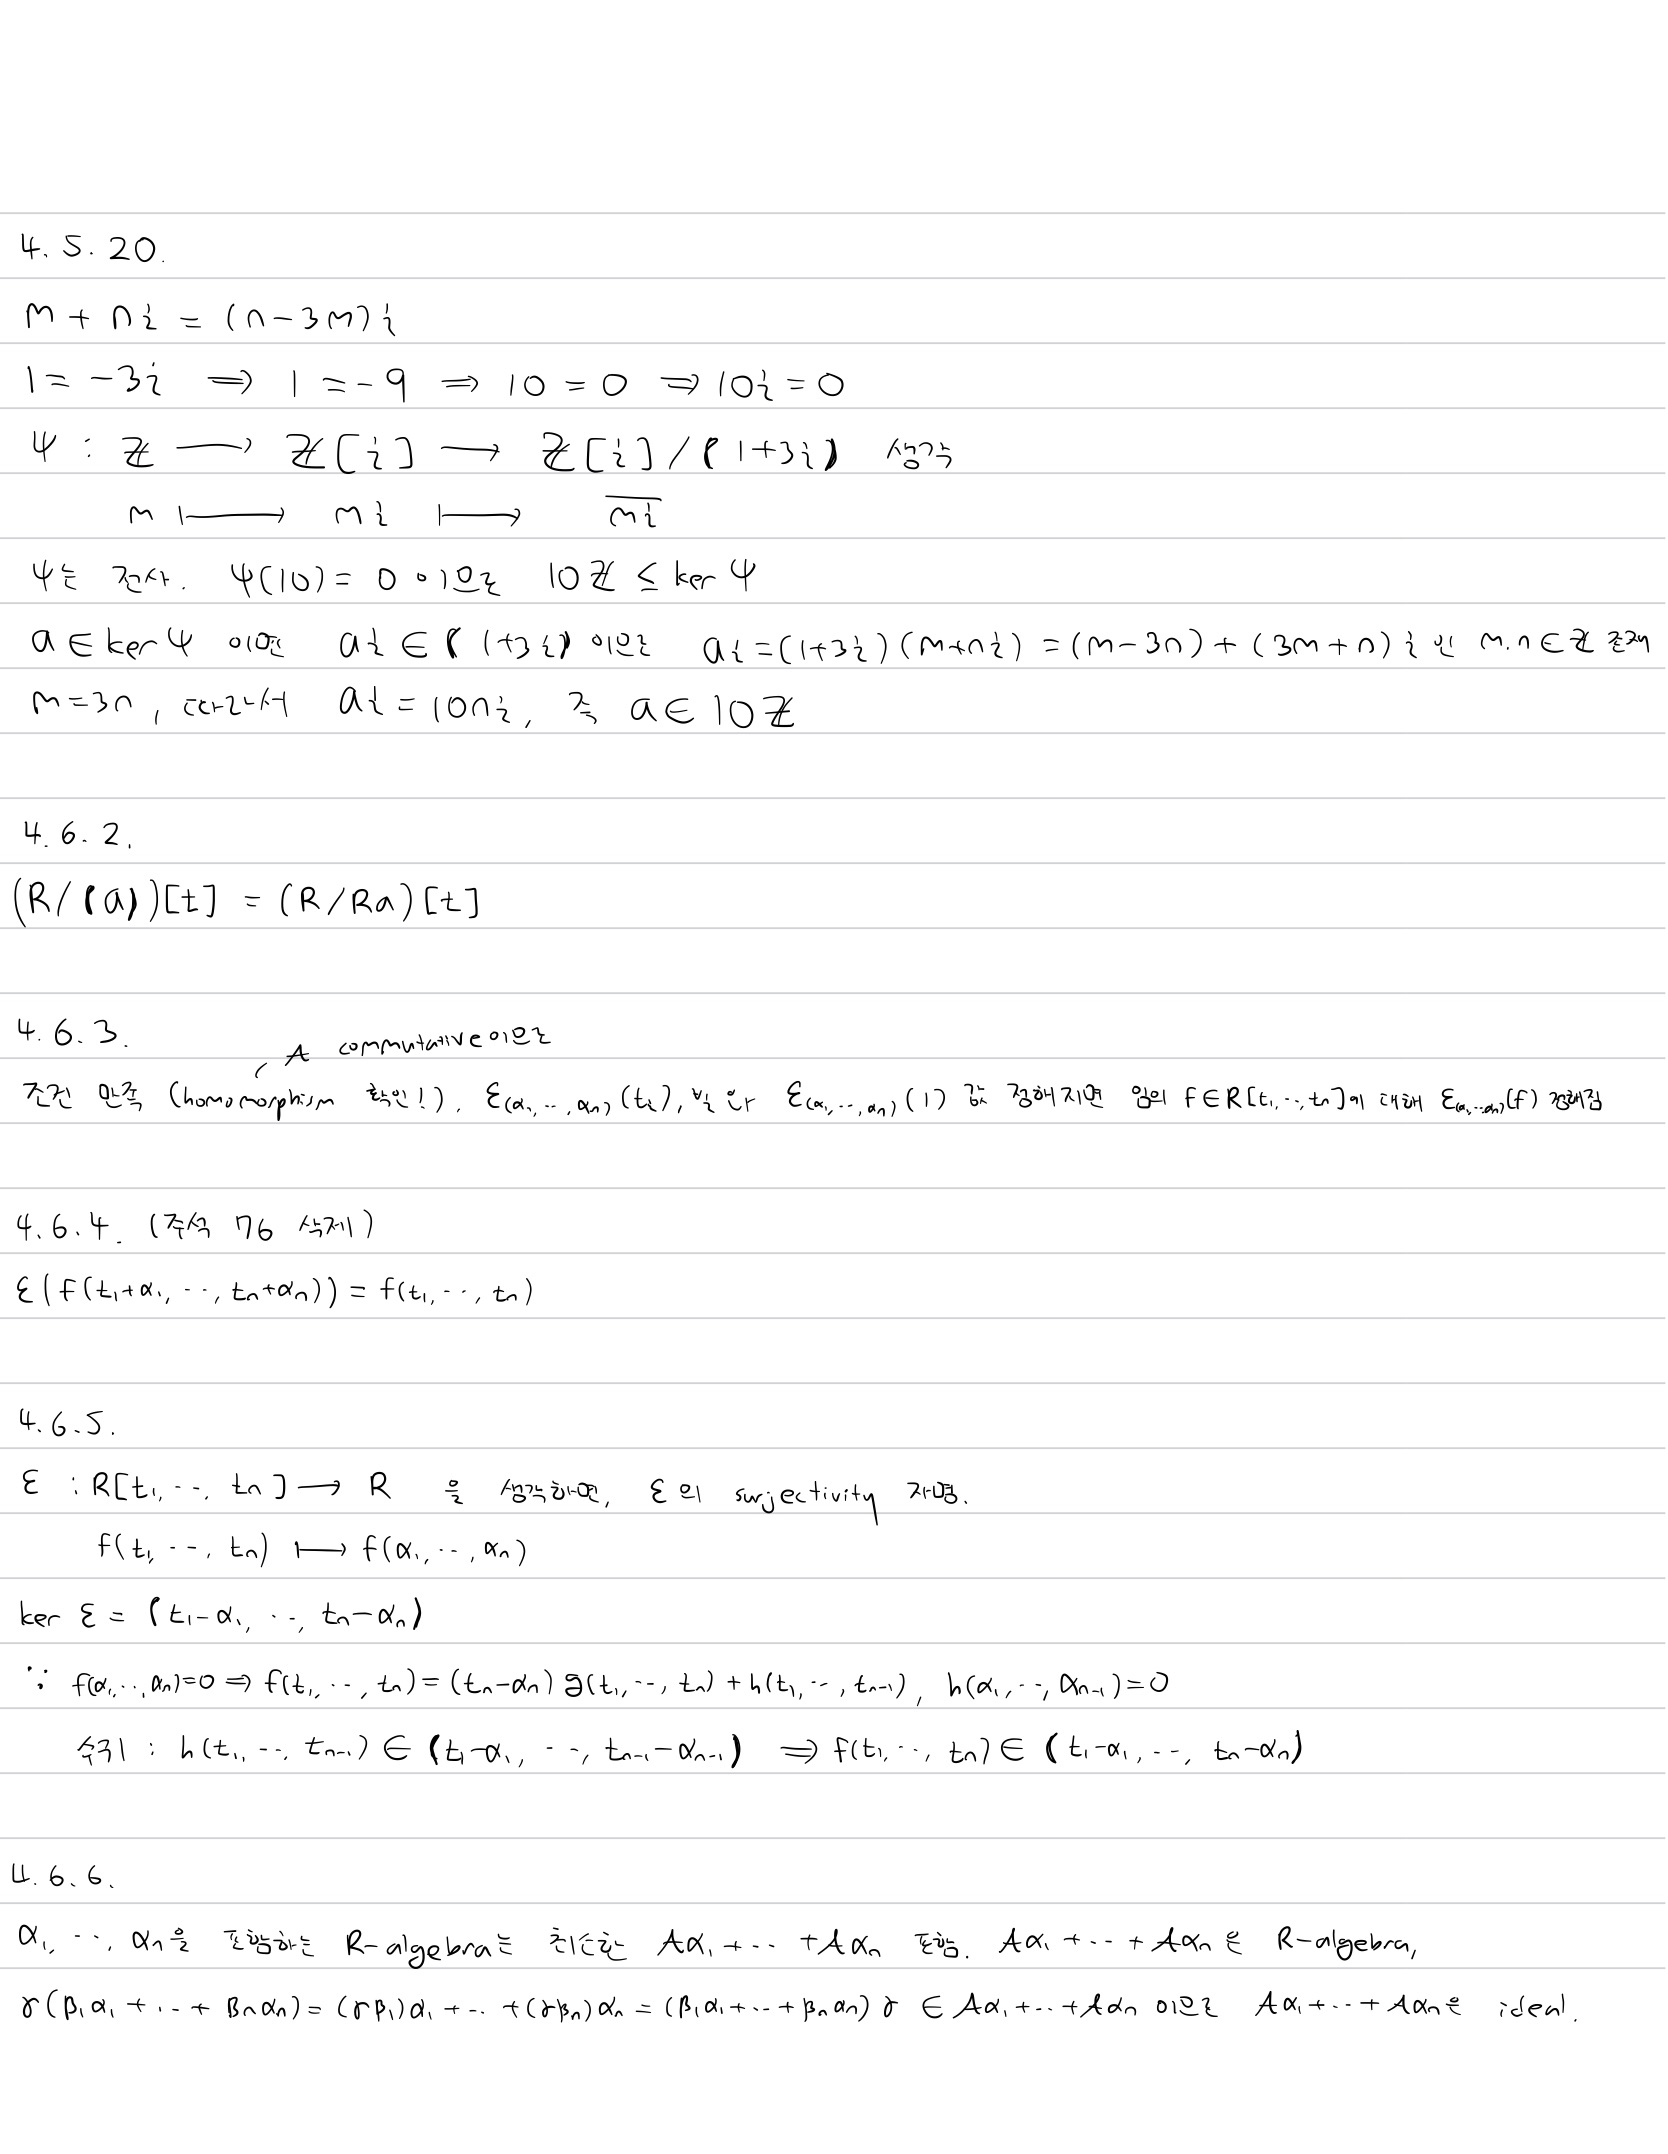 4.5.20.
m + ni = (n-3m)i
1 = -3i ⟹ 1 = -9 ⟹ 10 = 0 ⟹ 10i = 0
ψ : ℤ ⟶ ℤ[i] ⟶ ℤ[i]/(1+3i) 생각
m ⟼ mi ⟼ \overline{mi}
ψ는 전사. ψ(10) = 0 이므로 10ℤ ≤ ker ψ
a ∈ ker ψ 이면 ai ∈ (1+3i) 이므로 ai = (1+3i)(m+ni) = (m-3n) + (3m+n)i 인 m.n ∈ ℤ 존재
m=3n, 따라서 ai = 10ni, 즉 a ∈ 10ℤ
4.6.2.
(R/(a))[t] = (R/Ra)[t]
4.6.3.
, A commutative이므로
조건 만족 (homomorphism 확인!). ε_{(α₁, ⋯, αₙ)}(tᵢ), 및 ε_{(α₁, ⋯, αₙ)}(1) 값 정해지면 임의 f∈R[t₁, ⋯, tₙ]에 대해 ε_{(α₁, ⋯, αₙ)}(f) 정해짐
4.6.4. (주석 76 삭제)
ε(f(t₁+α₁, ⋯, tₙ+αₙ)) = f(t₁, ⋯, tₙ)
4.6.5.
ε : R[t₁, ⋯, tₙ] ⟶ R 을 생각하면, ε의 surjectivity 자명.
f(t₁, ⋯, tₙ) ⟼ f(α₁, ⋯, αₙ)
ker ε = (t₁-α₁, ⋯, tₙ-αₙ)
∵ f(α₁, ⋯, αₙ)=0 ⟹ f(t₁, ⋯, tₙ) = (tₙ-αₙ) g(t₁, ⋯, tₙ) + h(t₁, ⋯, tₙ₋₁), h(α₁, ⋯, αₙ₋₁)=0
수귀 : h(t₁, ⋯, tₙ₋₁) ∈ (t₁-α₁, ⋯, tₙ₋₁-αₙ₋₁) ⟹ f(t₁, ⋯, tₙ) ∈ (t₁-α₁, ⋯, tₙ-αₙ)
4.6.6.
α₁, ⋯, αₙ을 포함하는 R-algebra는 최소한 Aα₁ + ⋯ + Aαₙ 포함. Aα₁ + ⋯ + Aαₙ은 R-algebra,
γ(β₁α₁ + ⋯ + βₙαₙ) = (γβ₁)α₁ + ⋯ + (γβₙ)αₙ = (β₁α₁ + ⋯ + βₙαₙ)γ ∈ Aα₁ + ⋯ + Aαₙ 이므로 Aα₁ + ⋯ + Aαₙ은 ideal.